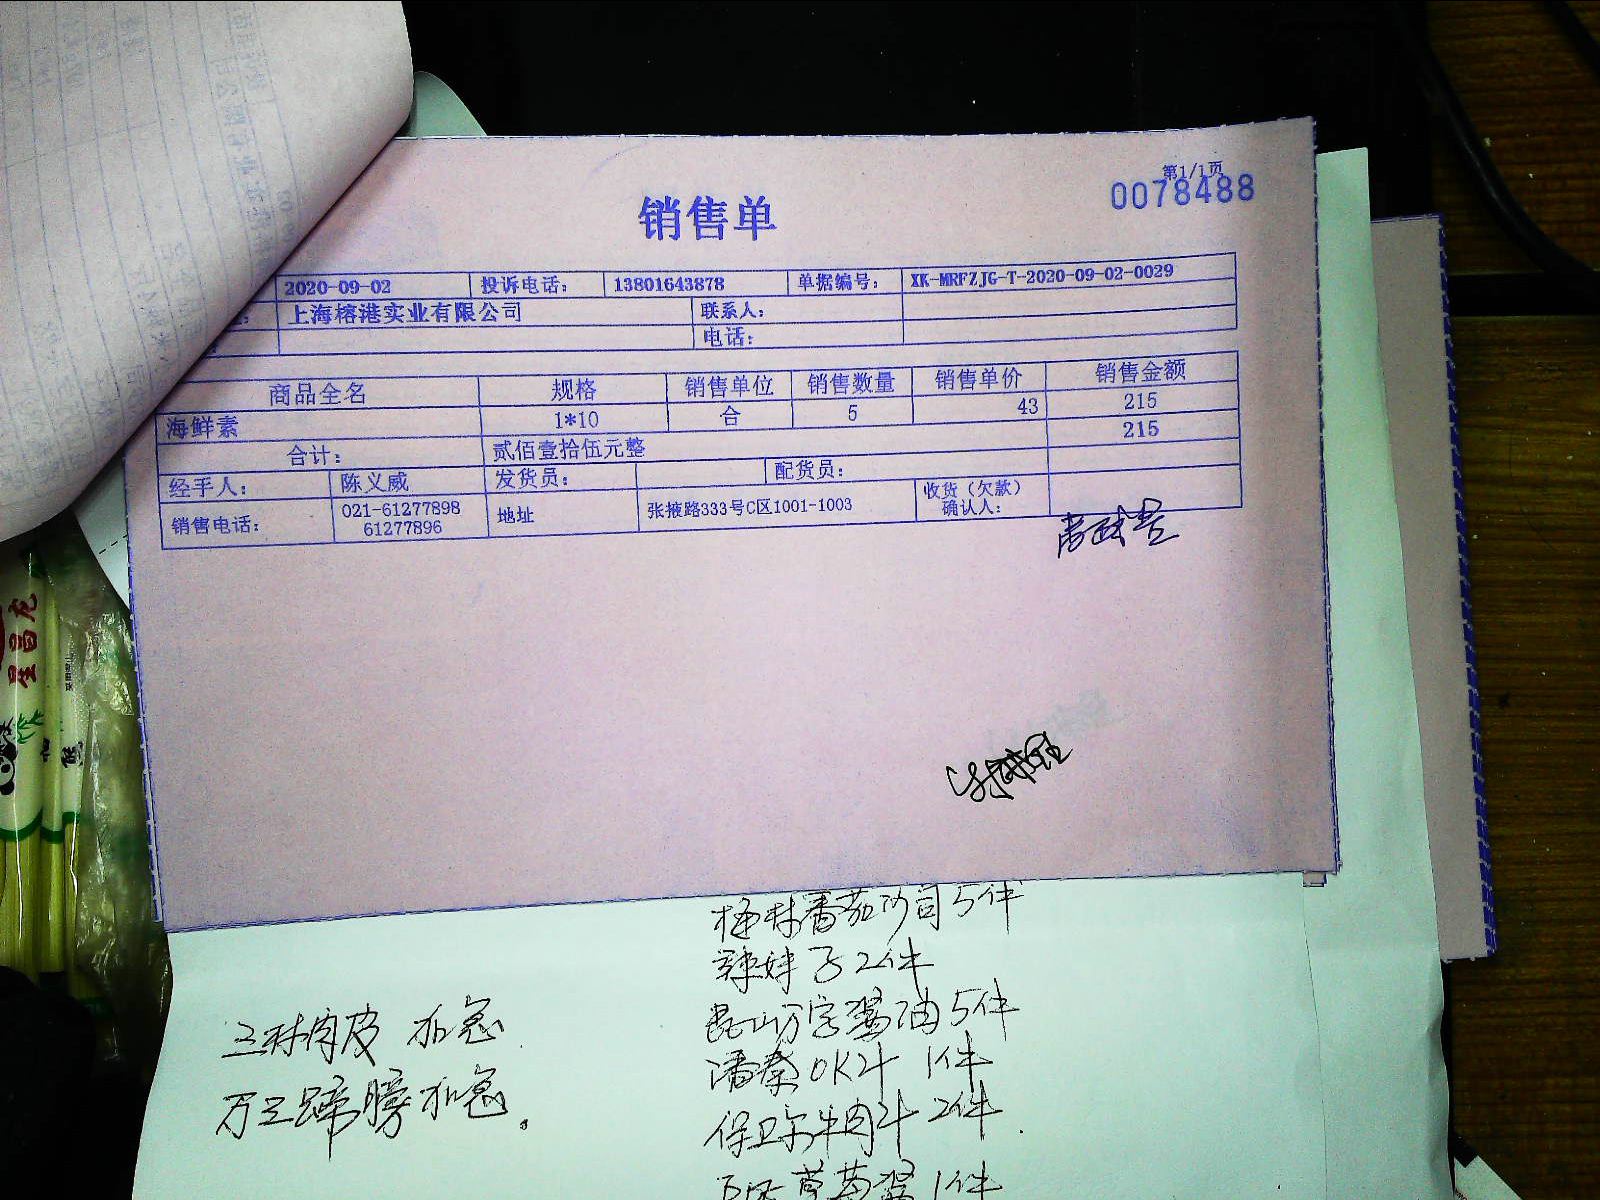 第1/1页
0078488
销售单
2020-09-02 投诉电话: 13801643878 单据编号: XK-MRFZJG-T-2020-09-02-0029
上海榕港实业有限公司 联系人:
电话:
商品全名 规格 销售单位 销售数量 销售单价 销售金额
海鲜素 1*10 合 5 43 215
合计: 贰佰壹拾伍元整 215
经手人: 陈义威 发货员: 配货员:
销售电话: 021-61277898 61277896 地址 张掖路333号C区1001-1003 收货(欠款)确认人:
梅林番茄沙司5件
辣妹子2件
昆山万字酱油5件
潘泰OK汁 1件
保卫尔牛肉汁 2件
草莓酱1件
三林肉皮 加急
万三蹄膀加急。